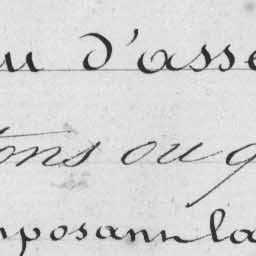 au d'asse
tons ou q
mposant la